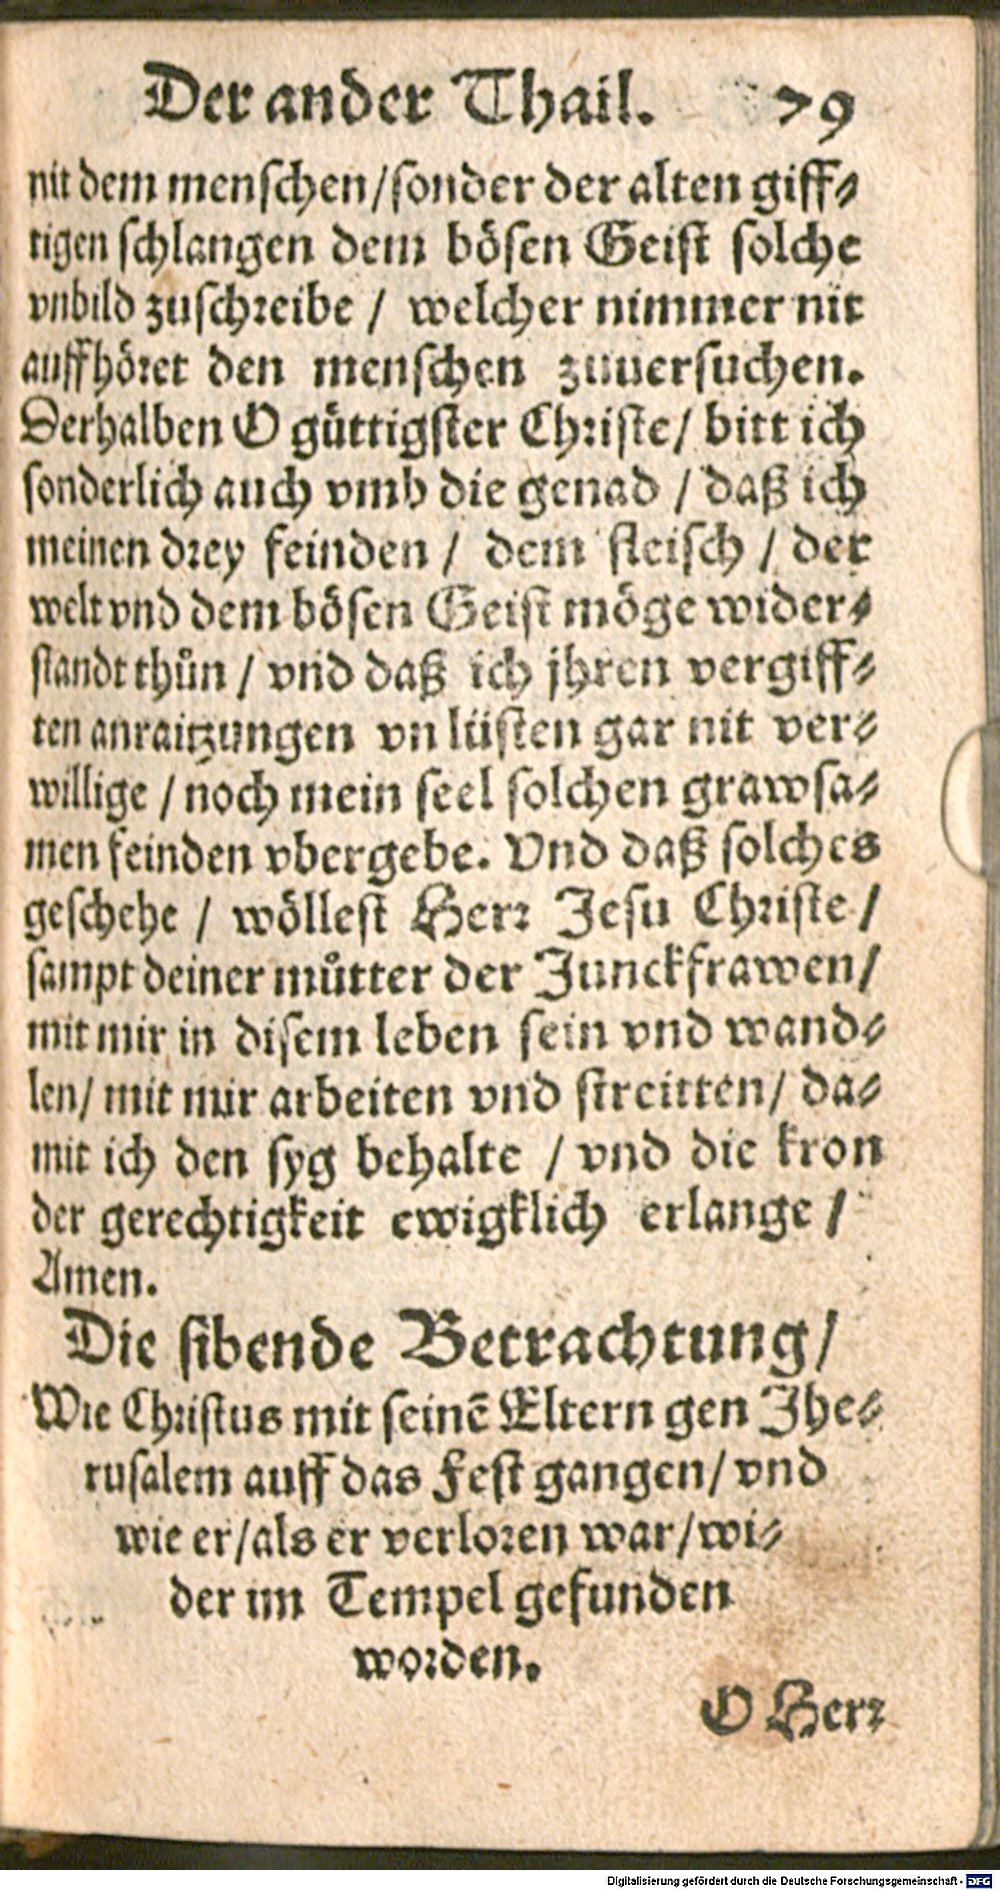 Der ander Thail. 79
nit dem menschen/sonder der alten giff⸗
tigen schlangen dem bösen Geist solche
vnbild zuschreibe / welcher nimmer nit
auffhöret den menschen zuuersuchen.
Derhalben O gůttigster Christe/ bitt ich
sonderlich auch vmb die genad / daß ich
meinen drey feinden / dem fleisch / der
welt vnd dem bösen Geist möge wider⸗
standt thůn / vnd daß ich jhren vergiff⸗
ten anraitzungen vn lüsten gar nit ver⸗
willige / noch mein seel solchen grawsa⸗
men feinden vbergebe. Vnd daß solches
geschehe / wöllest Herr Jesu Christe /
sampt deiner můtter der Junckfrawen/
mit mir in disem leben sein vnd wand⸗
len/ mit mir arbeiten vnd streitten/ da⸗
mit ich den syg behalte / vnd die kron
der gerechtigkeit ewigklich erlange /
Amen.
Die sibende Betrachtung/
Wie Christus mit seinē Eltern gen Jhe⸗
rusalem auff das Fest gangen/ vnd
wie er/als er verloren war/wi⸗
der im Tempel gefunden
worden.
O Herr
Digitalisierung gefördert durch die Deutsche Forschungsgemeinschaft - DFG